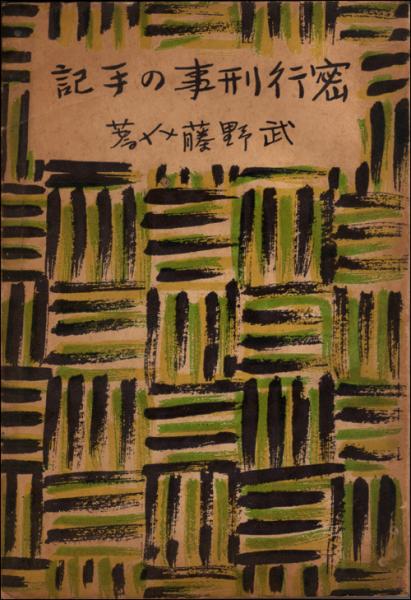 密行刑事の手記
武野藤介著